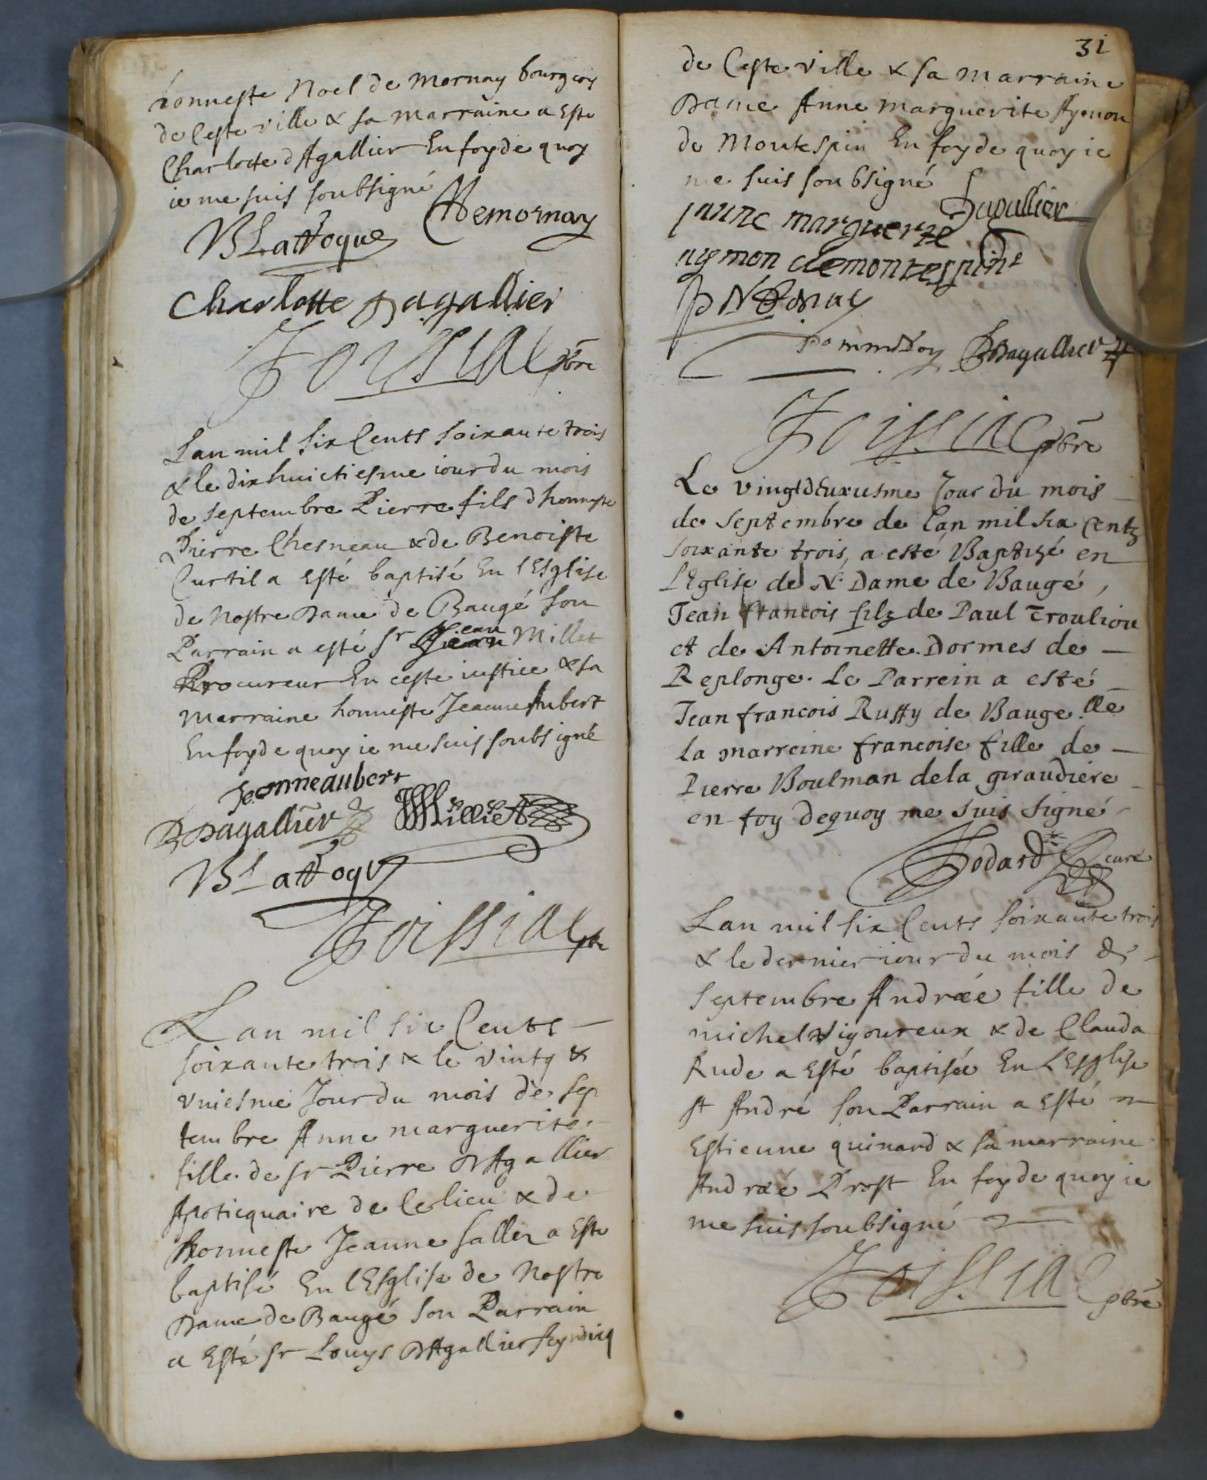 honneste Noel de Mornay bourgeois
de Ceste ville & sa marraine a este
Charlotte dAgallier En foy de quoy
ie me suis soubsigné
Demornay
Charlotte Dagallier
Foissiac pbre
Lan mil six Cents soixante trois
& le dixhuictiesme iour du mois
de septembre Pierre fils dhonneste
Pierre Chesneau & de Benoiste
Curtil a esté baptisé En lEsglise
de Nostre Dame de Baugé son
Parrain a esté Sr Jean Millet
Procureur En ceste iustice & sa
marraine honneste Jeanne Aubert
En foy de quoy ie me suis soubsigné
Jeanneaubert
Dagallier Milliet
Foissiac pbr
Lan mil six Cents
soixante trois & le vintg &
vniesme Jour du mois de sep
tembre Anne marguerite
fille de sr Pierre DAgallier
Apoticquaire de Ce lieu & de
honneste Jeanne Sallez a Este
baptisé En lEsglise de Nostre
Dame de Baugé Son Parrain
a Esté sr Louys DAgallier scyndicq
31
de Ceste ville & sa marraine
Dame Anne marguerite Aymon
de Montespin En foy de quoy ie
me suis soubsigné
Dagallier
anne marguerite
aymon demontespin
Dagallier
Foissiac pbre
Le vingtdeuxiesme Jour du mois
de Septembre de lan mil six Centz
soixante trois, a esté Baptizé en
l'Eglise de N: Dame de Baugé,
Jean francois filz de Paul Troulion
et de Antoinette Dormes de
Replonge. Le Parrein a esté
Jean francois Ruffy de Bauge. &
la marreine francoise fille de
Pierre Boulman dela giraudiere
en foy dequoy me suis signé
Godard curé
Lan mil six Cents soixante trois
& le dernier iour du mois de
septembre Andrée fille de
michel Vigoureux & de Clauda
Rude a Esté baptisée En LEsglise
st André son Parrain a Esté
Estienne quinard & sa marraine
Andrée Prost En foy de quoy ie
me suis soubsigné
Foissiac pbre